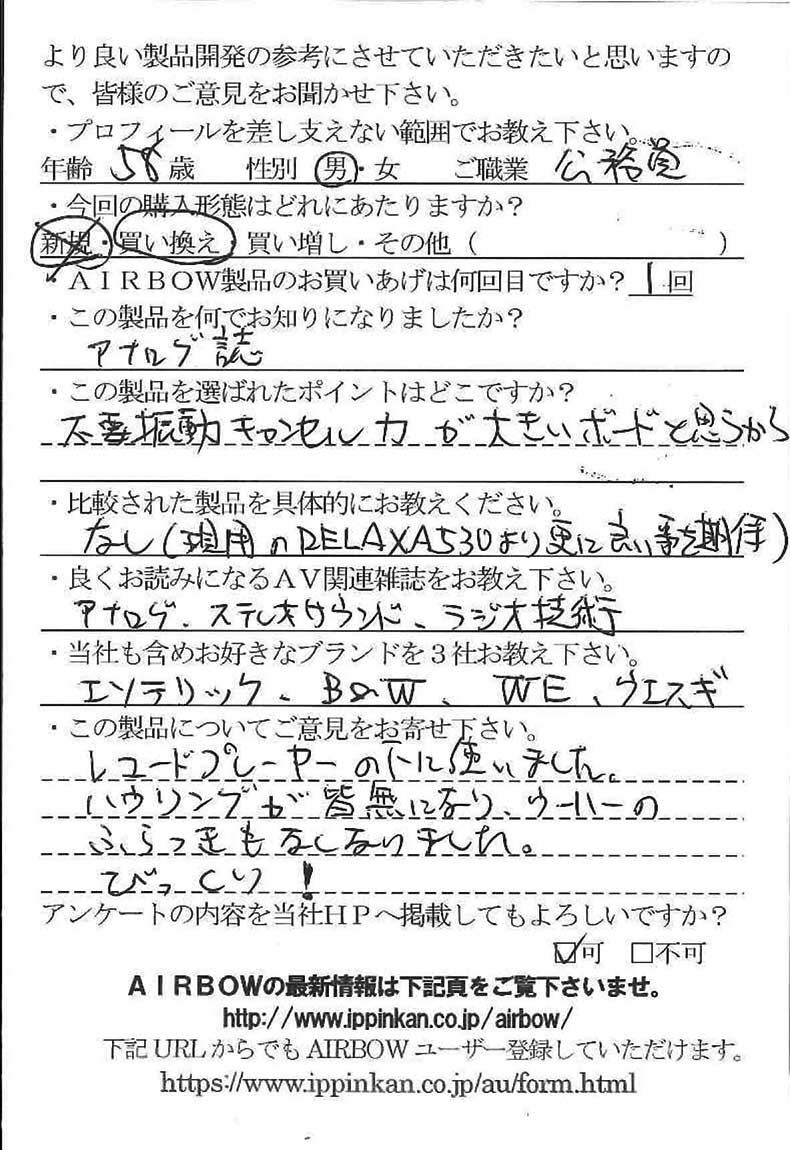 より良い製品開発の参考にさせていただきたいと思いますの
で、皆様のご意見をお聞かせ下さい。
・プロフィールを差し支えない範囲でお教え下さい。
年齢 58 歳 性別 男・女 ご職業 公務員
・今回の購入形態はどれにあたりますか？
新規・買い換え・買い増し・その他（ ）
・ＡＩＲＢＯＷ製品のお買いあげは何回目ですか？ 1 回
・この製品を何でお知りになりましたか？
アナログ誌
・この製品を選ばれたポイントはどこですか？
不要振動キャンセル力が大きいボードと思うから
・比較された製品を具体的にお教えください。
なし（現用のRELAXA530より更に良い事を期待）
・良くお読みになるＡＶ関連雑誌をお教え下さい。
アナログ、ステレオサウンド、ラジオ技術
・当社も含めお好きなブランドを３社お教え下さい。
エソテリック、B&W、WE、ウエスギ
・この製品についてご意見をお寄せ下さい。
レコードプレーヤーの下に使いました。
ハウリングが皆無になり、ウーハーの
ふらつきもなくなりました。
びっくり！
アンケートの内容を当社ＨＰへ掲載してもよろしいですか？
☑可 □不可
ＡＩＲＢＯＷの最新情報は下記頁をご覧下さいませ。
http://www.ippinkan.co.jp/airbow/
下記 URL からでも AIRBOW ユーザー登録していただけます。
https://www.ippinkan.co.jp/au/form.html